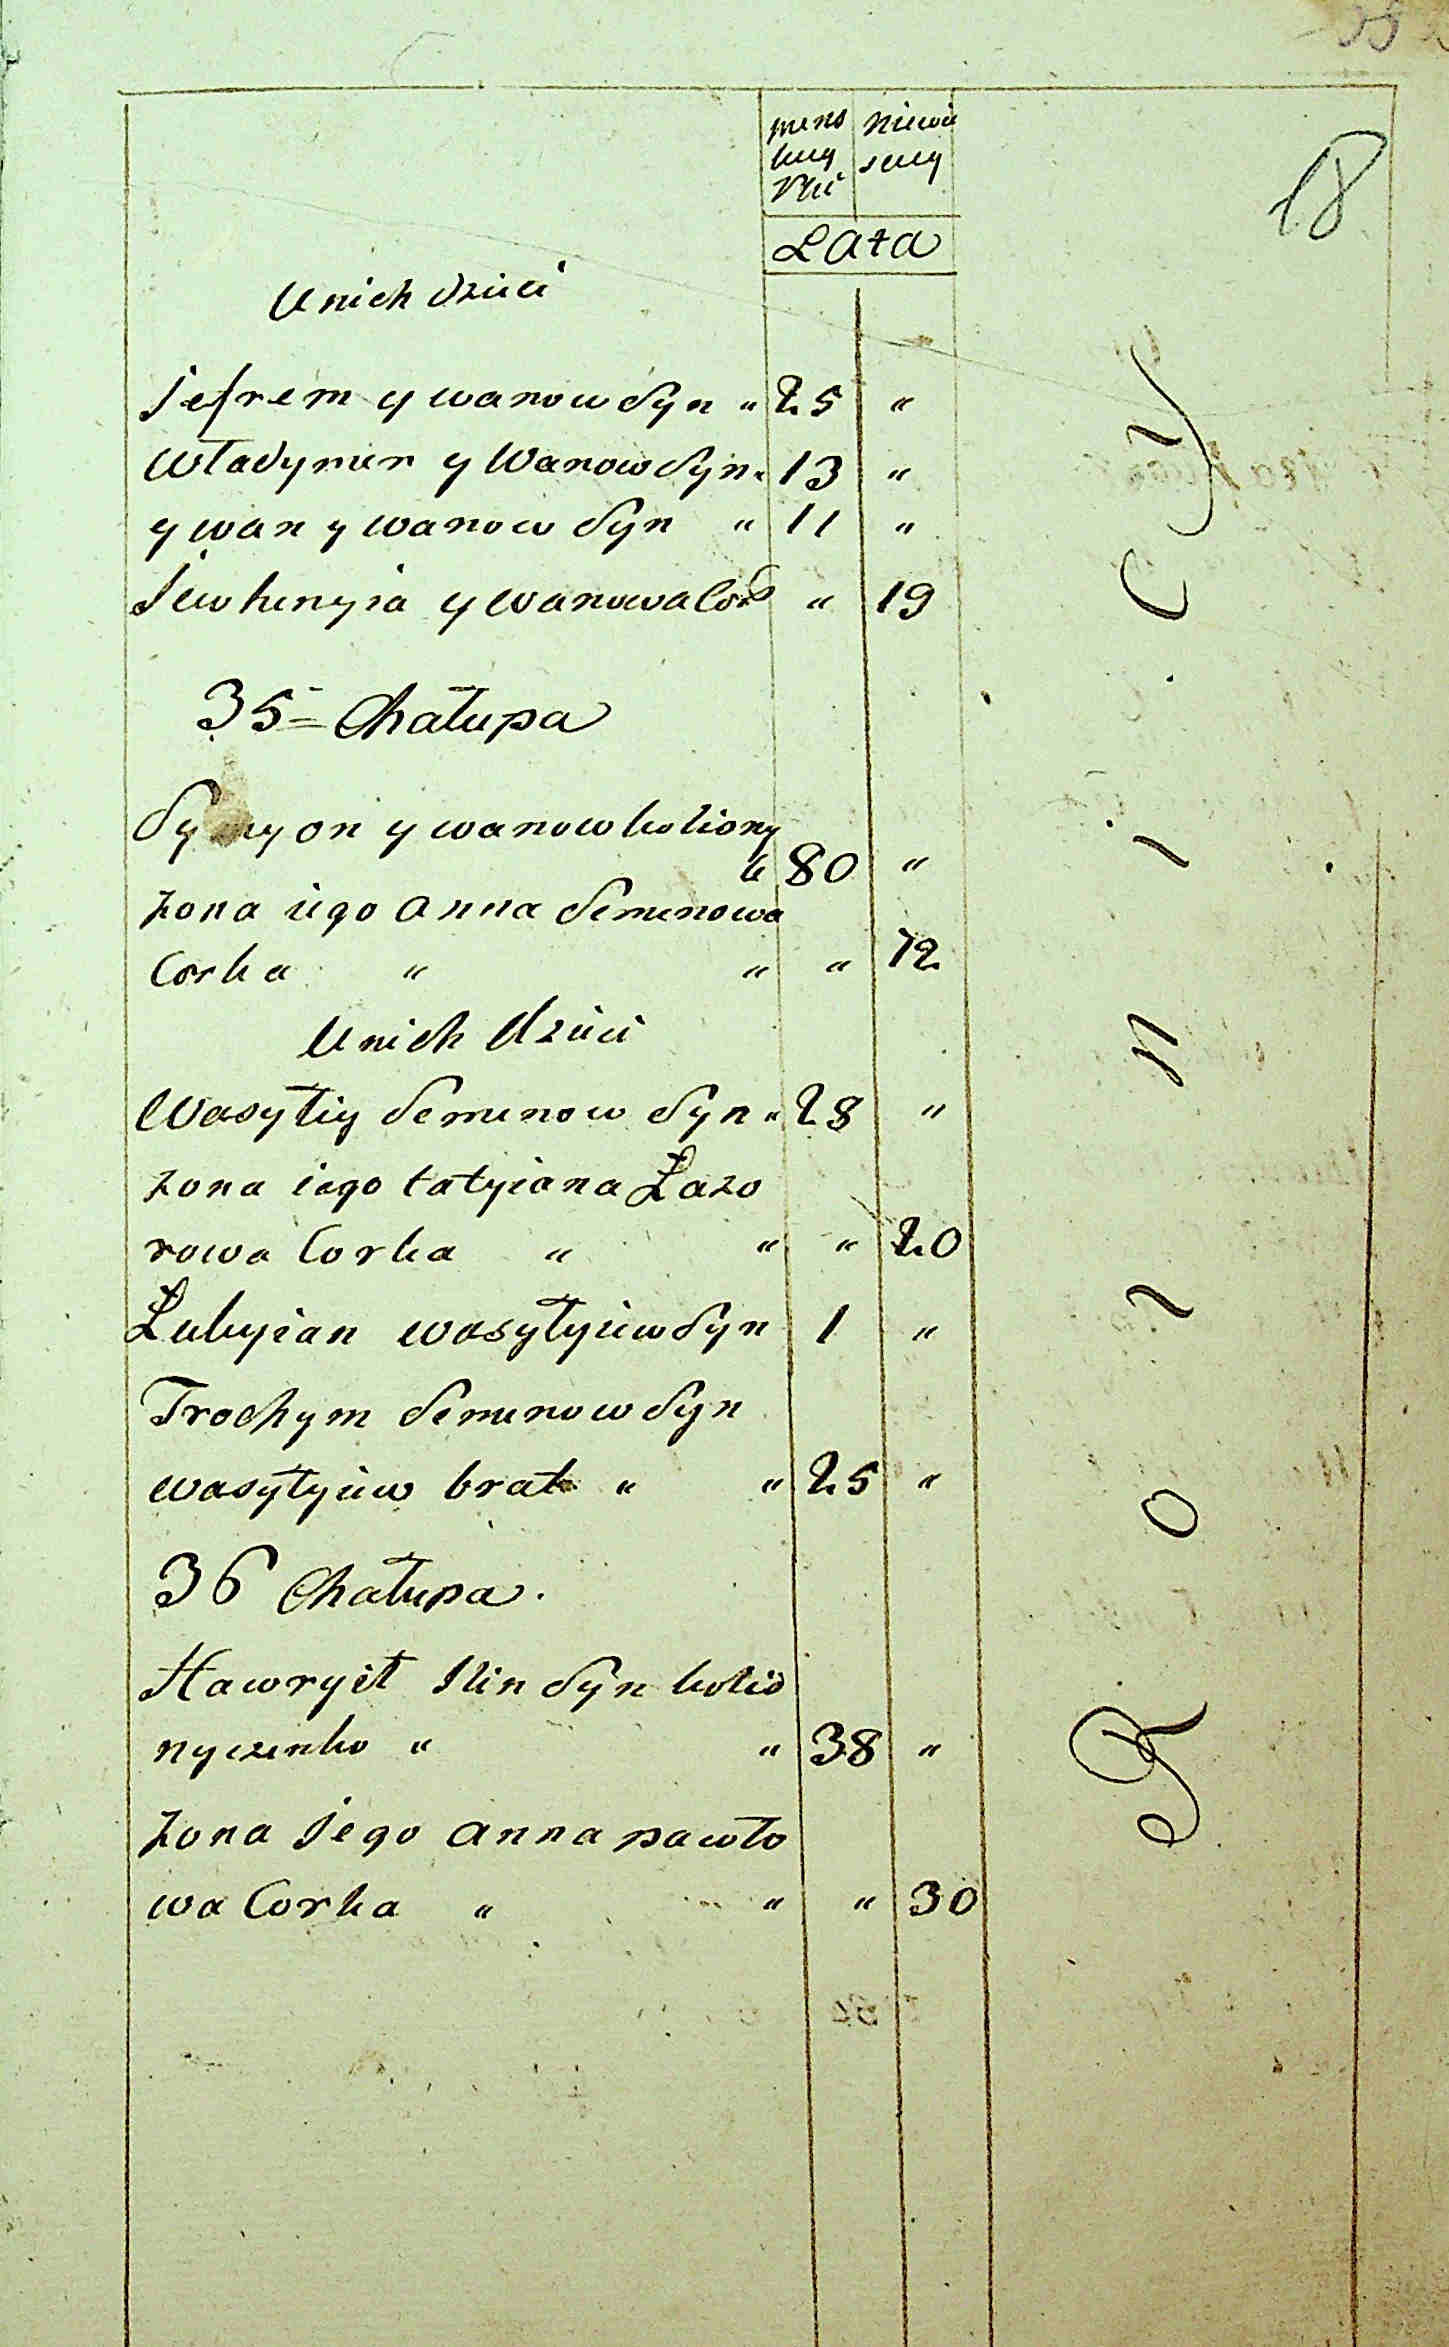 18
męno
kuy
Płci
niewie
sciey
Lata
U nich dzieci
Jefrem ywanow Syn „ 25 „
Władymer yWanow Syn „ 13 „
ywan ywanow Syn „ 11 „
Jewhenyia ywanowa Cor „ 19
35 = Chałupa
Symyon ywanow koliony
„ 80 „
żona iego Anna Semenowa
Corka „ „ „ 72
U nich dzieci
Wasyłiy Semenow Syn „ 28 „
żona iego tatyiana Łazo
rowa Corka „ „ „ 20
Łukyian wasyłyiew Syn 1 „
Trochym Semenow Syn
wasyłyiew brat „ „ 25 „
36 Chałupa.
Hawryił Ilin Syn kolio
nyczenko „ „ 38 „
żona Jego Anna pawło
wa Corka „ „ „ 30